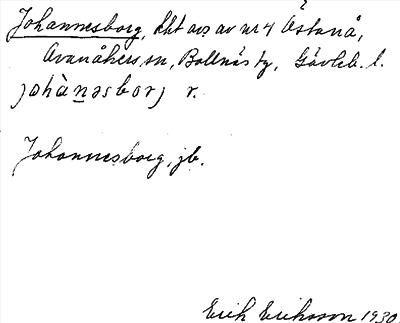 Johannesborg, lht avs av nr 4 Östanå,
Arenåkers sn, Bollnäs tg, Gävleb. l.
johànəsborj r.
Johannesborg, jb.
Erik Eriksson 1930.